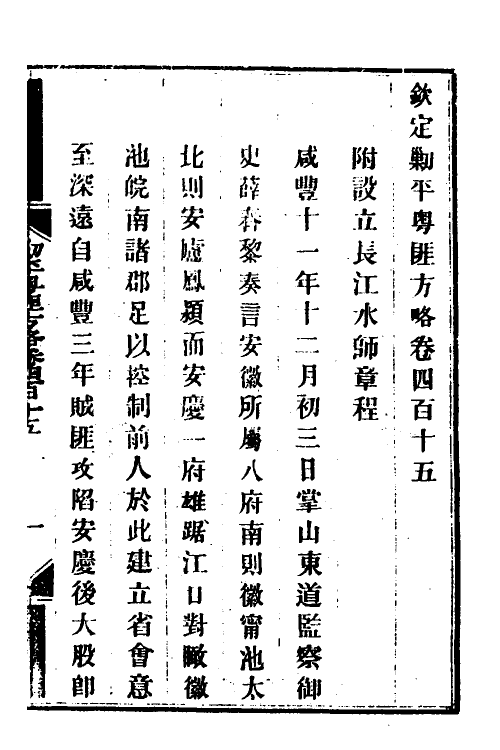 欽定勦平粵匪方略卷四百十五
附設立長江水師章程
咸豐十一年十二月初三日掌山東道監察御
史薛春黎奏言安徽所屬八府南則徽甯池太
北則安廬鳳潁而安慶一府雄踞江口對瞰徽
池皖南諸郡足以控制前人於此建立省會意
至深遠自咸豐三年賊匪攻陷安慶後大股卽
一